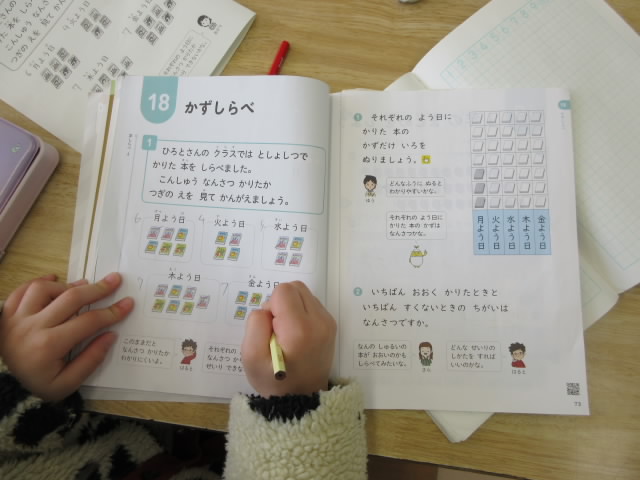 18 かずしらべ
1
ひろとさんの クラスでは としょしつで
かりた 本を しらべました。
こんしゅう なんさつ かりたか
つぎの えを 見て かんがえましょう。
6 月よう日
4 火よう日
水よう日
7 木よう日
7 金よう日
このままだと
なんさつ かりたか
わかりにくいよ。
はると
1 それぞれの よう日に
かりた 本の
かずだけ いろを
ぬりましょう。
どんなふうに ぬると
わかりやすいかな。
それぞれの よう日に
かりた 本の かずは
なんさつかな。
月よう日
火よう日
水よう日
木よう日
金よう日
2 いちばん おおく かりたときと
いちばん すくないときの ちがいは
なんさつですか。
なんの しゅるいの
本が おおいのかも
しらべてみたいな。
どんな せいりの
しかたを すれば
いいのかな。
はると
73